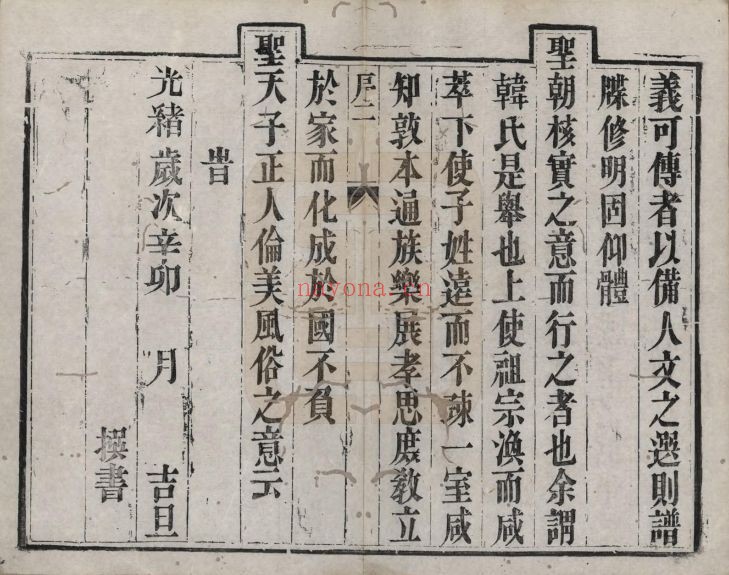 義可傳者以備人文之選則譜
牒修明固仰體
聖朝核實之意而行之者也余謂
韓氏是舉也上使祖宗渙而咸
萃下使子姓遠而不疎一室咸
知敦本通族樂展孝思庶敎立
序二
於家而化成於國不負
聖天子正人倫美風俗之意云
旹
光緒歲次辛卯 月 吉旦
撰書
nayona.cn